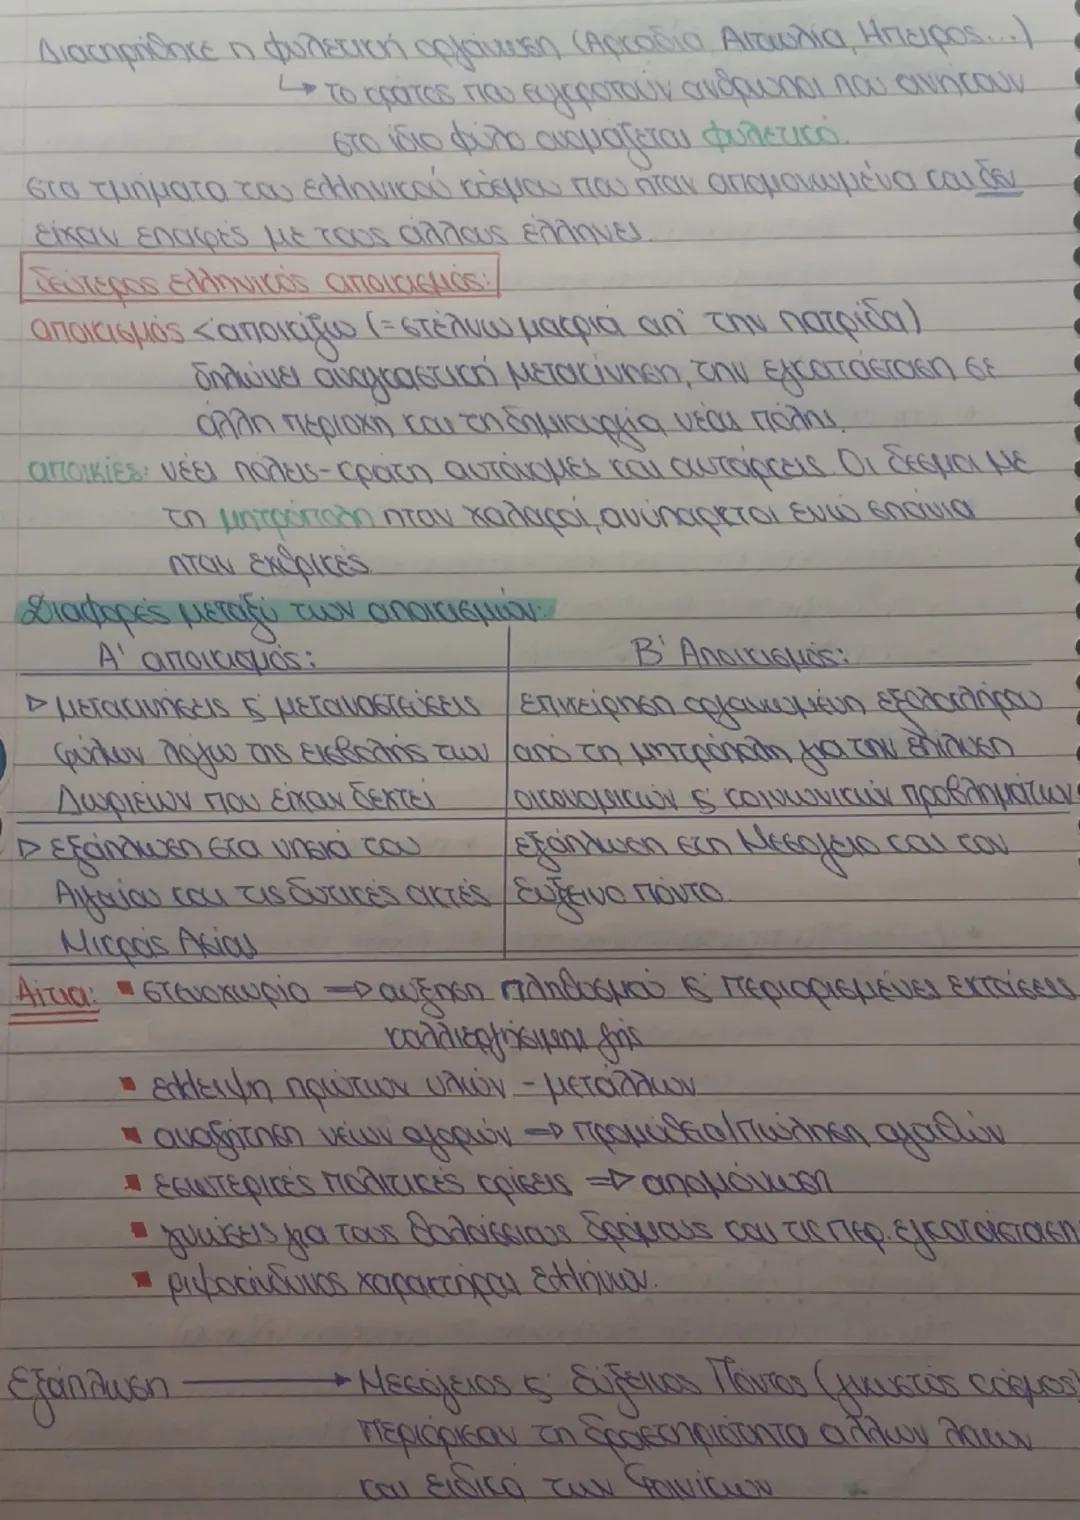 Διατηρήθηκε η φυλετική οργάνωση (Αρκαδία Αιτωλία, Ήπειρος...)
↳ το κράτος που συγκροτούν άνθρωποι που ανήκουν
στο ίδιο φύλο ονομάζεται φυλετικό.
στα τμήματα του ελληνικού κόσμου που ήταν απομονωμένα και δεν
είχαν επαφές με τους άλλους έλληνες.
δεύτερος ελληνικός αποικισμός:
αποικισμός <αποικίζω (=στέλνω μακριά απ' την πατρίδα)
δηλώνει αναγκαστική μετακίνηση, την εγκατάσταση σε
άλλη περιοχή και τη δημιουργία νέας πόλης.
αποικίες: νέες πόλεις-κράτη αυτόνομες και αυτάρκεις. Οι δεσμοί με
τη μητρόπολη ήταν χαλαροί, ανύπαρκτοι ενώ σπάνια
ήταν εχθρικές.
Διαφορές μεταξύ των αποικισμών:
Α' αποικισμός: Β' Αποικισμός:
▷ μετακινήσεις ς' μεταναστεύσεις επιχείρηση οργανωμένη εξολοκλήρου
φύλων λόγω της εισβολής των από τη μητρόπολη για την επίλυση
Δωριέων που είχαν δεχτεί οικονομικών ς' κοινωνικών προβλημάτων
▷ εξάπλωση στα νησιά του εξάπλωση στη Μεσόγειο και τον
Αιγαίου και τις δυτικές ακτές Εύξεινο πόντο.
Μικράς Ασίας
Αίτια: ▪ στενοχωρία ⇒ αύξηση πληθυσμού ς' περιορισμένες εκτάσεις
καλλιεργήσιμης γης
▪ έλλειψη πρώτων υλών - μετάλλων
▪ αναζήτηση νέων αγορών ⇒ προμήθεια/πώληση αγαθών
▪ εσωτερικές πολιτικές κρίσεις ⇒ απομόνωση
▪ γνώσεις για τους θαλάσσιους δρόμους και τις περ. εγκατάσταση
▪ ριψοκίνδυνος χαρακτήρας Ελλήνων.
Εξάπλωση → Μεσόγειος ς' Εύξεινος Πόντος (γνωστός κόσμος)
περιόρισαν τη δραστηριότητα άλλων λαών
και ειδικά των Φοινίκων